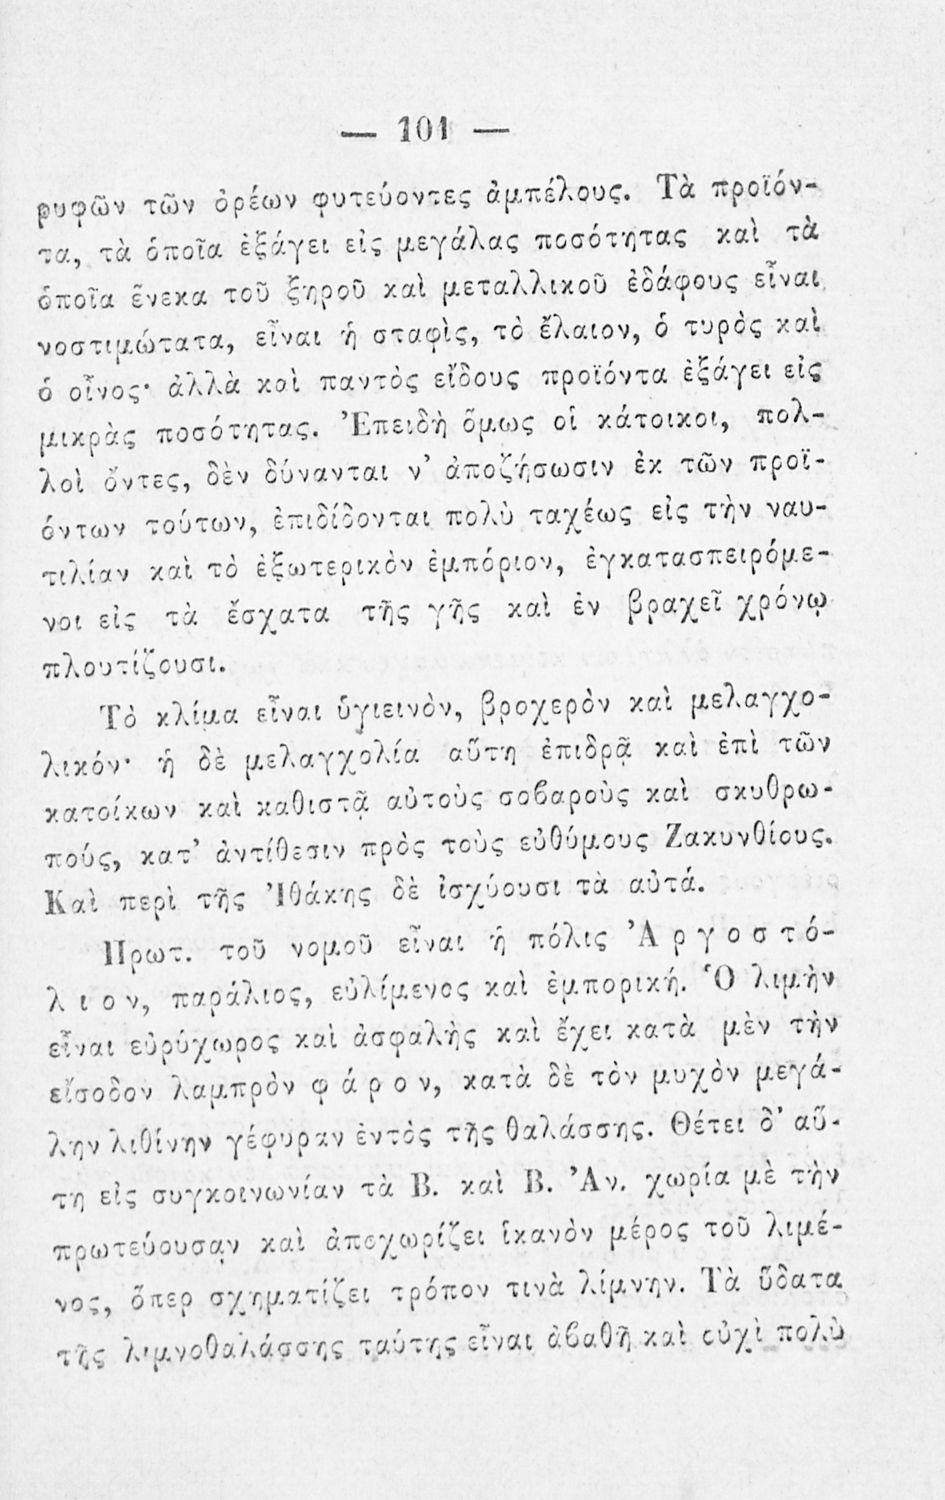 — 101 —
ρυφῶν τῶν ὀρέων φυτεύοντες ἀμπέλους. Τὰ προϊόν-
τα, τὰ ὁποῖα ἐξάγει εἰς μεγάλας ποσότητας καὶ τὰ
ὁποῖα ἕνεκα τοῦ ξηροῦ καὶ μεταλλικοῦ ἐδάφους εἶναι
νοστιμώτατα, εἶναι ἡ σταφὶς, τὸ ἔλαιον, ὁ τυρὸς καὶ
ὁ οἶνος· ἀλλὰ καὶ παντὸς εἴδους προϊόντα ἐξάγει εἰς
μικρὰς ποσότητας. Ἐπειδὴ ὅμως οἱ κάτοικοι, πολ-
λοὶ ὄντες, δὲν δύνανται ν' ἀποζήσωσιν ἐκ τῶν προϊ-
όντων τούτων, ἐπιδίδονται πολὺ ταχέως εἰς τὴν ναυ-
τιλίαν καὶ τὸ ἐξωτερικὸν ἐμπόριον, ἐγκατασπειρόμε-
νοι εἰς τὰ ἔσχατα τῆς γῆς καὶ ἐν βραχεῖ χρόνῳ
πλουτίζουσι.
Τὸ κλίμα εἶναι ὑγιεινὸν, βροχερὸν καὶ μελαγχο-
λικόν· ἡ δὲ μελαγχολία αὕτη ἐπιδρᾷ καὶ ἐπὶ τῶν
κατοίκων καὶ καθιστᾷ αὐτοὺς σοβαροὺς καὶ σκυθρω-
πούς, κατ' ἀντίθεσιν πρὸς τοὺς εὐθύμους Ζακυνθίους.
Καὶ περὶ τῆς Ἰθάκης δὲ ἰσχύουσι τὰ αὐτά.
Πρωτ. τοῦ νομοῦ εἶναι ἡ πόλις Ἀ ρ γ ο σ τ ό-
λ ι ο ν, παράλιος, εὐλίμενος καὶ ἐμπορική. Ὁ λιμὴν
εἶναι εὐρύχωρος καὶ ἀσφαλὴς καὶ ἔχει κατὰ μὲν τὴν
εἴσοδον λαμπρὸν φ ά ρ ο ν, κατὰ δὲ τὸν μυχὸν μεγά-
λην λιθίνην γέφυραν ἐντὸς τῆς θαλάσσης. Θέτει δ' αὕ-
τη εἰς συγκοινωνίαν τὰ Β. καὶ Β. Ἀν. χωρία μὲ τὴν
πρωτεύουσαν καὶ ἀποχωρίζει ἱκανὸν μέρος τοῦ λιμέ-
νος, ὅπερ σχηματίζει τρόπον τινὰ λίμνην. Τὰ ὕδατα
τῆς λιμνοθαλάσσης ταύτης εἶναι ἀβαθῆ καὶ οὐχὶ πολὺ